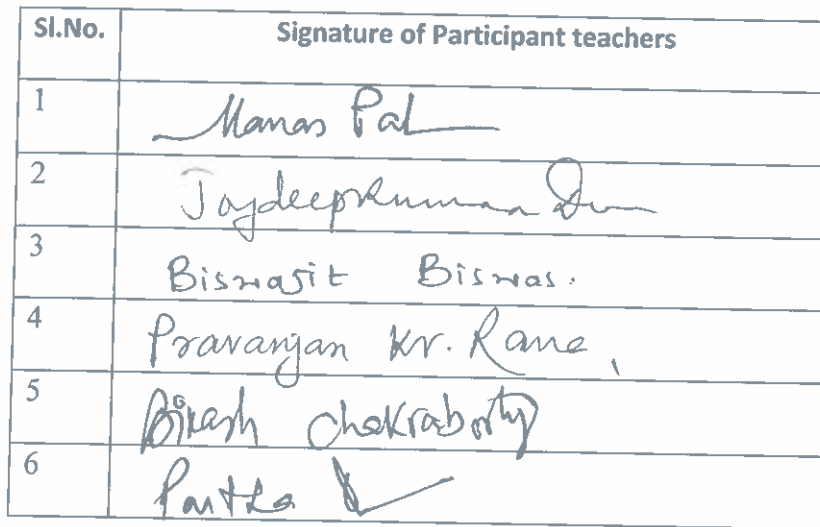 Sl.No. Signature of Participant teachers
1 Manas Pal
2 Jaydeep Kumar
3 Biswajit Biswas.
4 Pravanjan Kr. Rana,
5 Bikash Chakraborty
6 Partha